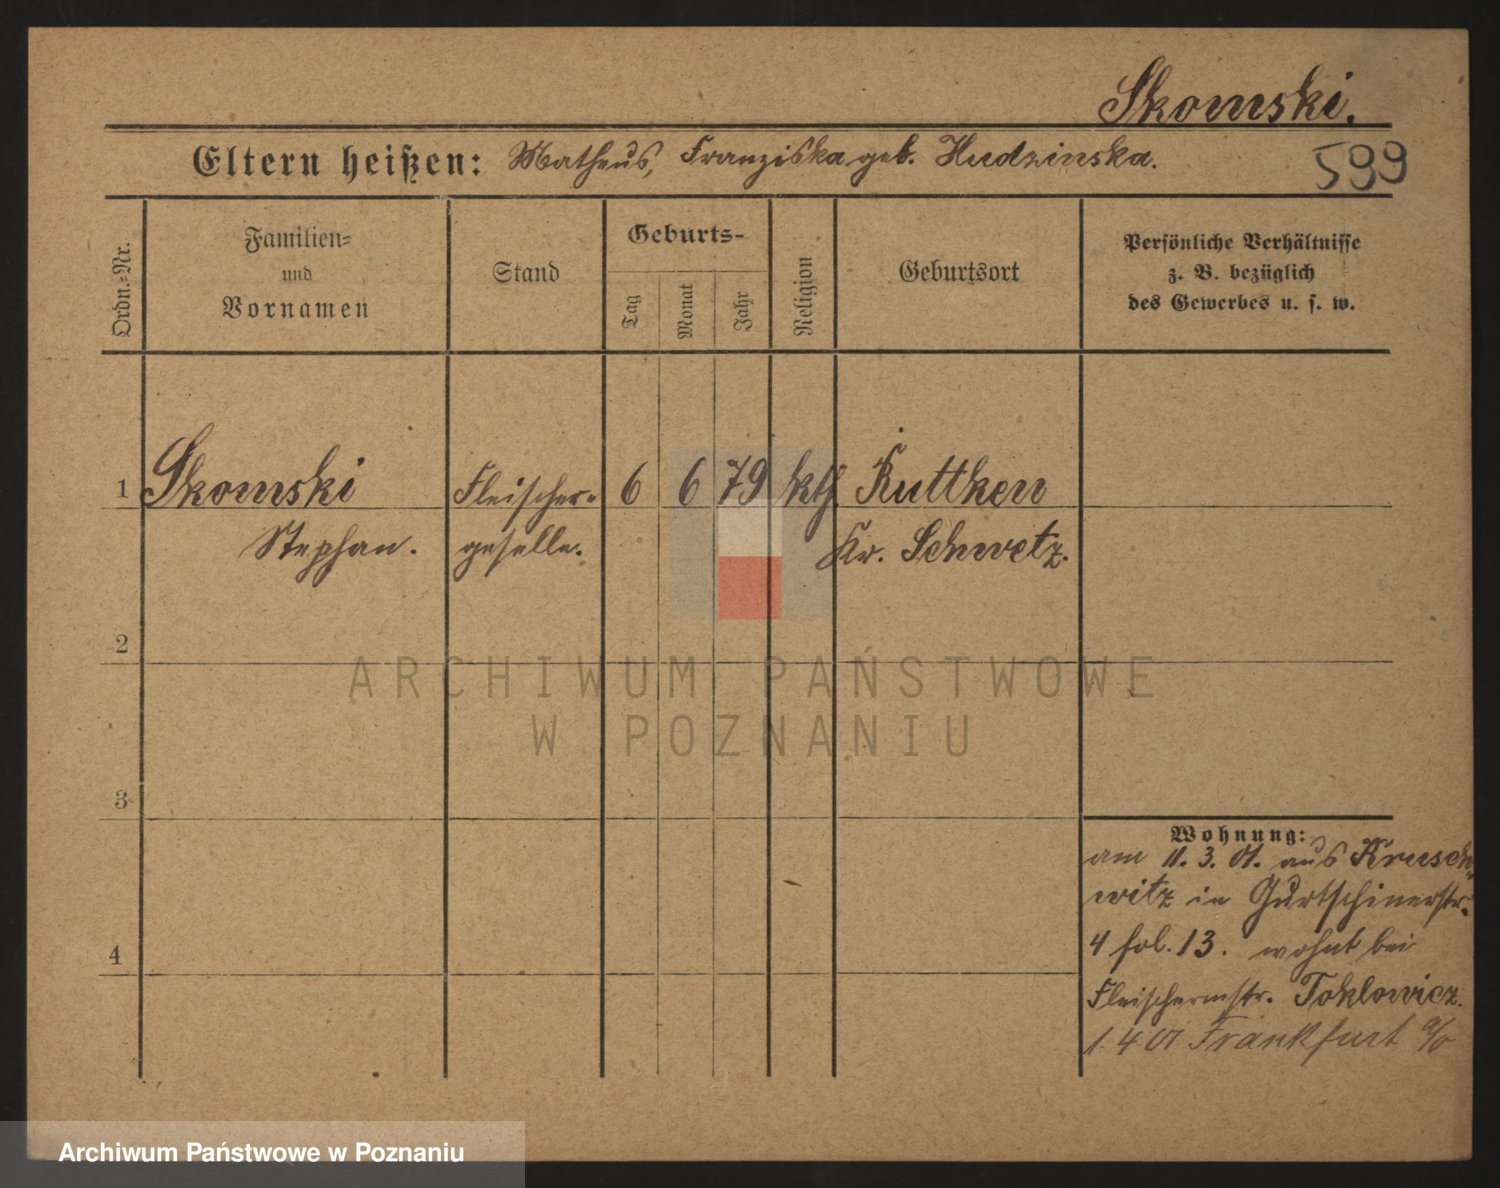 Skomski.
Eltern heißen: Matheus, Franziska geb. Hudzinska.
599
Ordn.-Nr.
Familien-
und
Vornamen
Stand
Geburts-
Tag
Monat
Jahr
Religion
Geburtsort
Persönliche Verhältnisse
z. B. bezüglich
des Gewerbes u. s. w.
1 Skomski Fleischer- 6 6 79 kth. Ruttken
Stephan. geselle. Kr. Schwetz.
2
ARCHIWUM PAŃSTWOWE
W POZNANIU
3
Wohnung:
am 11. 3. 01. aus Krusch-
witz in Gurtschinerstr.
4 fol. 13. wohnt bei
4
Fleischermstr. Toklowicz.
1. 4 01 Frankfurt a/o
Archiwum Państwowe w Poznaniu